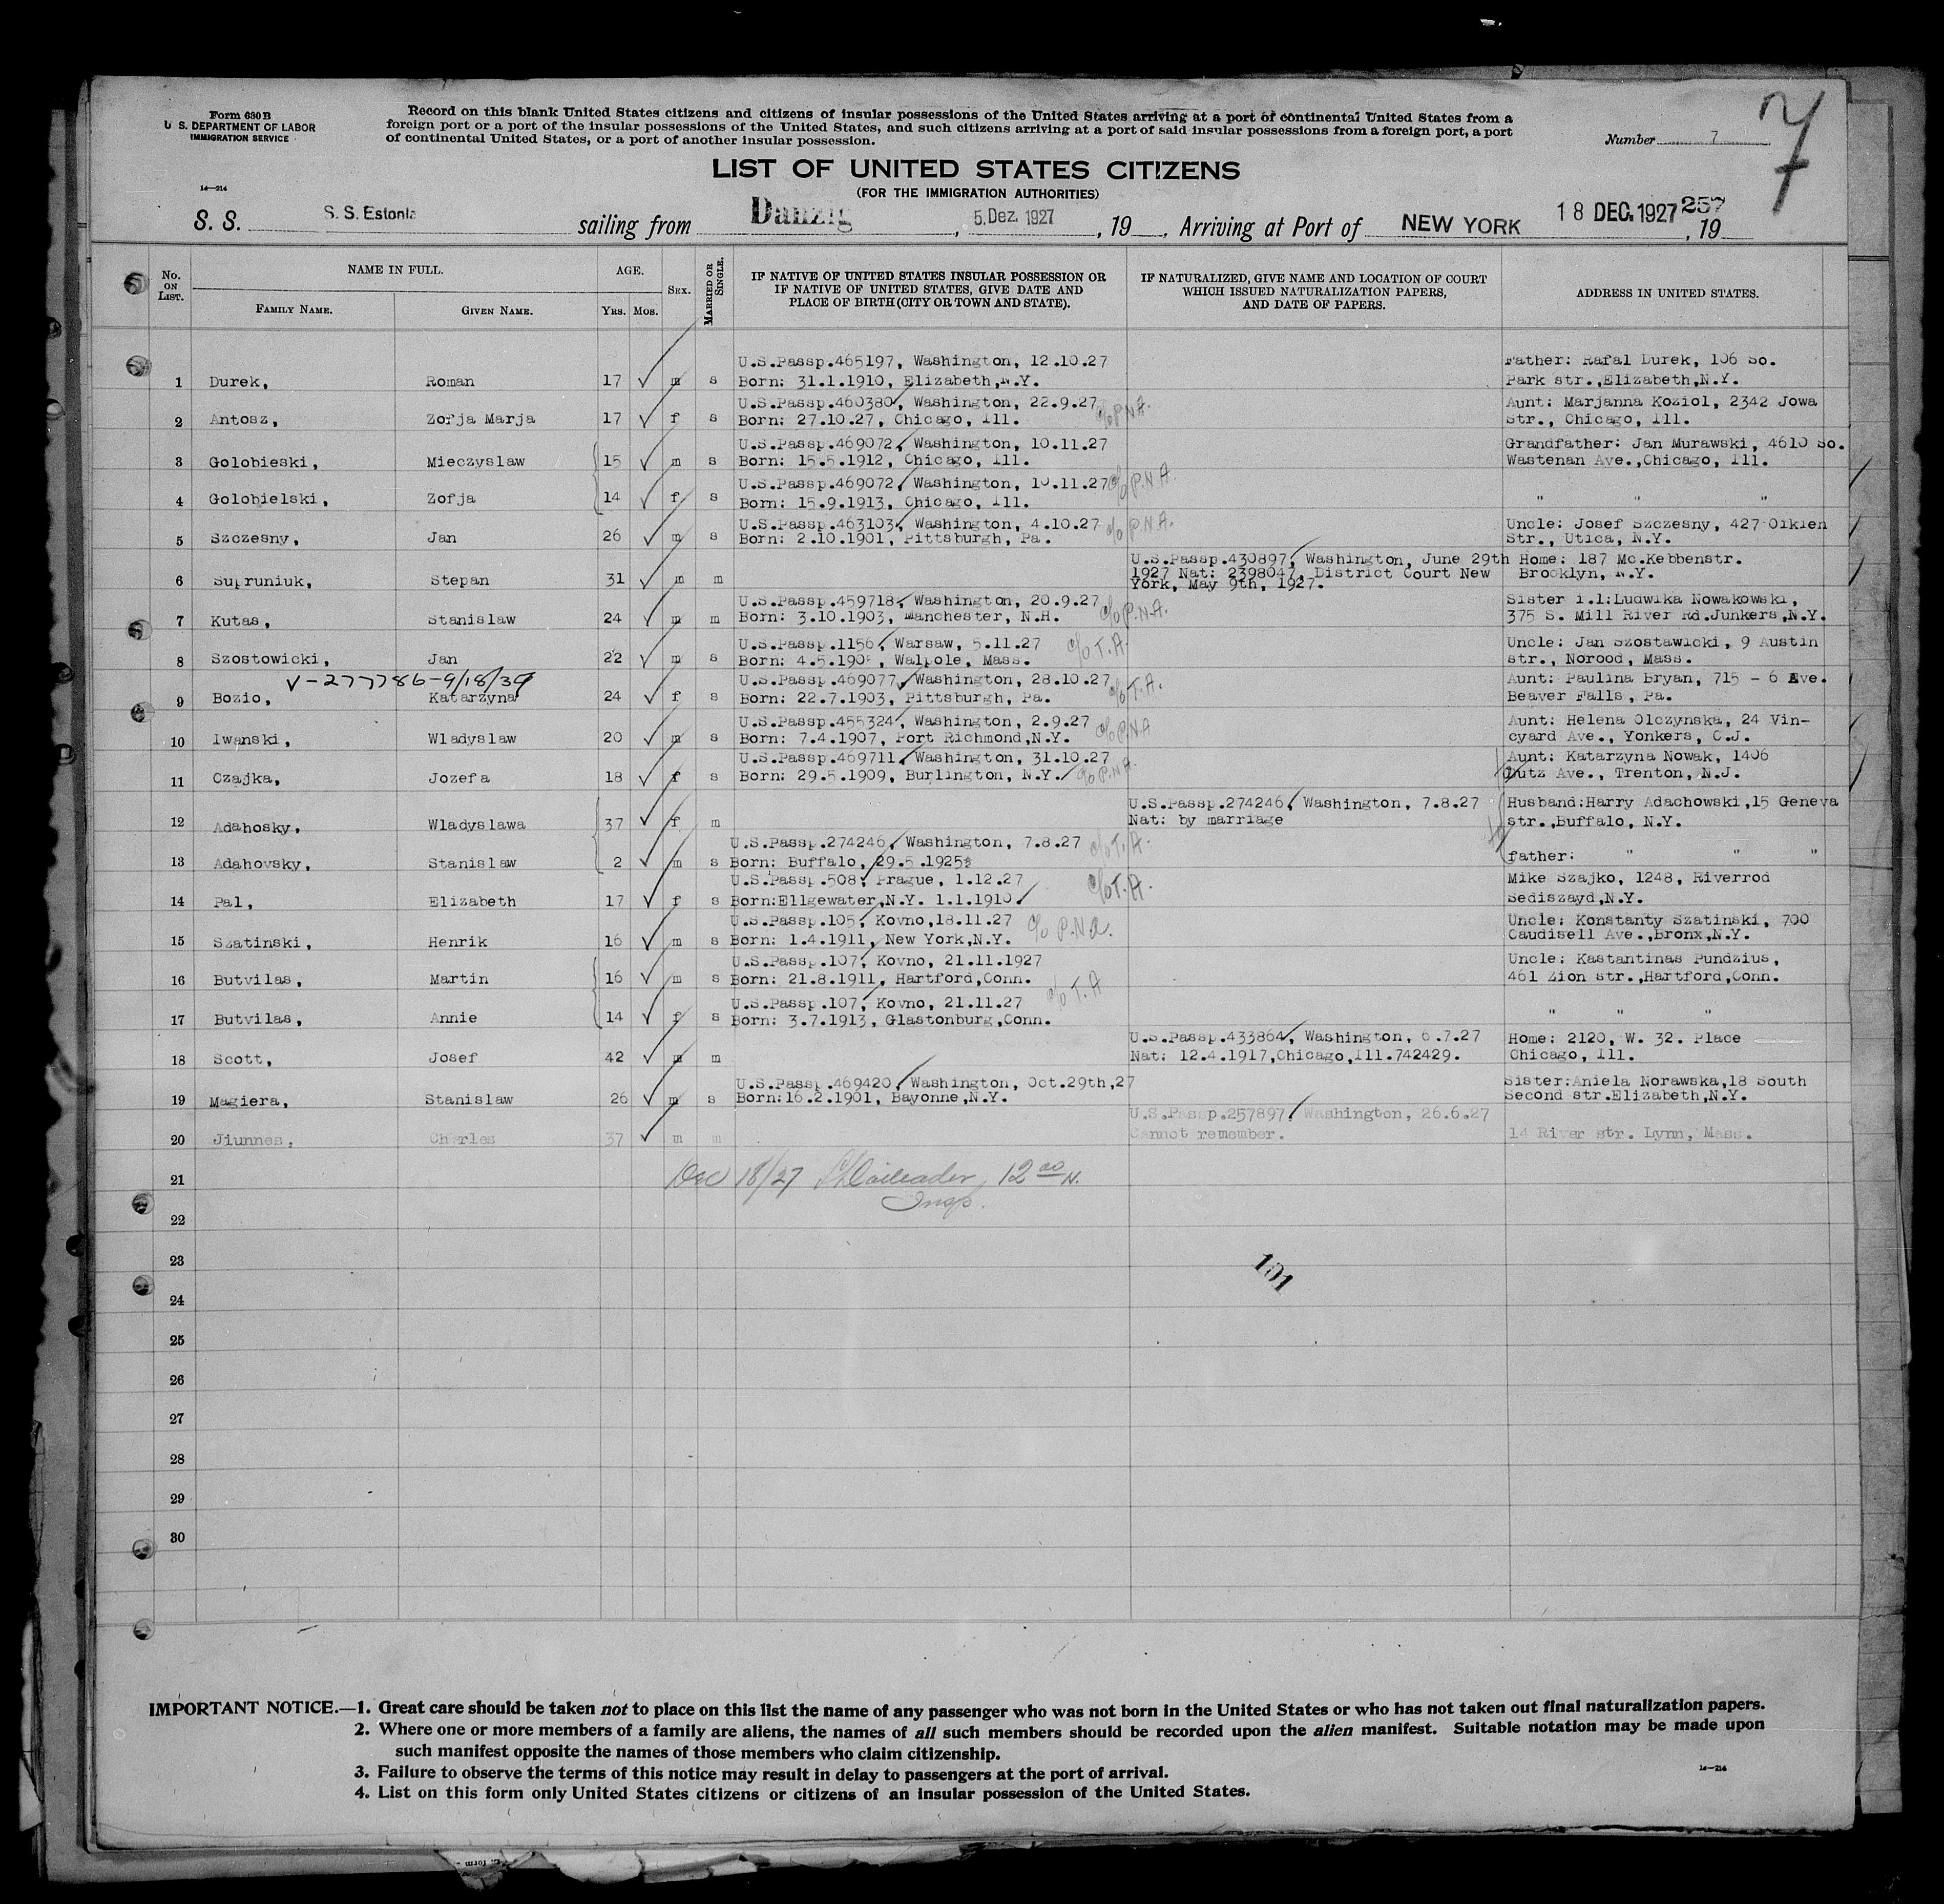 Form 630 B
U. S. DEPARTMENT OF LABOR
IMMIGRATION SERVICE
14—214
Record on this blank United States citizens and citizens of insular possessions of the United States arriving at a port of continental United States from a
foreign port or a port of the insular possessions of the United States, and such citizens arriving at a port of said insular possessions from a foreign port, a port
of continental United States, or a port of another insular possession.
Number 7
7
LIST OF UNITED STATES CITIZENS
(FOR THE IMMIGRATION AUTHORITIES)
S. S. S. S. Estonia sailing from Danzig, 5. Dez. 1927, 19 , Arriving at Port of NEW YORK 18 DEC. 1927, 19
257
No. ON LIST.
NAME IN FULL.
FAMILY NAME.
GIVEN NAME.
AGE.
YRS.
MOS.
SEX.
MARRIED OR SINGLE.
IF NATIVE OF UNITED STATES INSULAR POSSESSION OR
IF NATIVE OF UNITED STATES, GIVE DATE AND
PLACE OF BIRTH (CITY OR TOWN AND STATE).
IF NATURALIZED, GIVE NAME AND LOCATION OF COURT
WHICH ISSUED NATURALIZATION PAPERS,
AND DATE OF PAPERS.
ADDRESS IN UNITED STATES.
U.S.Passp.465197, Washington, 12.10.27 Father: Rafal Durek, 106 So.
1 Durek, Roman 17 m s Born: 31.1.1910, Elizabeth,N.Y. Park str.,Elizabeth,N.Y.
U.S.Passp.460380, Washington, 22.9.27 c/o P.N.A. Aunt: Marjanna Koziol, 2342 Jowa
2 Antosz, Zofja Marja 17 f s Born: 27.10.27, Chicago, Ill. str., Chicago, Ill.
U.S.Passp.469072, Washington, 10.11.27 Grandfather: Jan Murawski, 4610 So.
3 Golobieski, Mieczyslaw 15 m s Born: 15.5.1912, Chicago, Ill. Wastenan Ave.,Chicago, Ill.
U.S.Passp.469072, Washington, 10.11.27 c/o P.N.A.
4 Golobielski, Zofja 14 f s Born: 15.9.1913, Chicago, Ill. " " "
U.S.Passp.463103, Washington, 4.10.27 c/o P.N.A. Uncle: Josef Szczesny, 427 Oikien
5 Szczesny, Jan 26 m s Born: 2.10.1901, Pittsburgh, Pa. Str., Utica, N.Y.
U.S.Passp.430897, Washington, June 29th Home: 187 Mc.Kebbenstr.
6 Supruniuk, Stepan 31 m m 1927 Nat: 2398047, District Court New Brooklyn, N.Y.
York, May 9th, 1927.
U.S.Passp.459718, Washington, 20.9.27 c/o P.N.A. Sister i.l:Ludwika Nowakowski,
7 Kutas, Stanislaw 24 m m Born: 3.10.1903, Manchester, N.H. 375 S. Mill River Rd.Junkers,N.Y.
U.S.Passp.1156, Warsaw, 5.11.27 c/o T.A. Uncle: Jan Szostawicki, 9 Austin
8 Szostowicki, Jan 22 m s Born: 4.5.190 , Walpole, Mass. str., Norood, Mass.
V-277786-9/18/39
U.S.Passp.469077, Washington, 28.10.27 c/o T.A. Aunt: Paulina Bryan, 715 - 6 Ave.
9 Bozio, Katarzyna 24 f s Born: 22.7.1903, Pittsburgh, Pa. Beaver Falls, Pa.
U.S.Passp.455324, Washington, 2.9.27 c/o P.N.A Aunt: Helena Olczynska, 24 Vin-
10 Iwanski, Wladyslaw 20 m s Born: 7.4.1907, Port Richmond,N.Y. cyard Ave., Yonkers, C.J.
U.S.Passp.469711, Washington, 31.10.27 Aunt: Katarzyna Nowak, 1406
11 Czajka, Jozefa 18 f s Born: 29.5.1909, Burlington, N.Y. c/o P.N.A. Butz Ave., Trenton, N.J.
U.S.Passp.274246, Washington, 7.8.27 Husband:Harry Adachowski,15 Geneva
12 Adahosky, Wladyslawa 37 f m Nat: by marriage str.,Buffalo, N.Y.
U.S.Passp.274246, Washington, 7.8.27 c/o T.A.
13 Adahovsky, Stanislaw 2 m s Born: Buffalo, 29.5.1925 father: " " "
U.S.Passp.508, Prague, 1.12.27 c/o T.A. Mike Szajko, 1248, Riverrod
14 Pal, Elizabeth 17 f s Born:Ellgewater,N.Y. 1.1.1910 Sediszayd,N.Y.
U.S.Passp.105, Kovno,18.11.27 c/o P.N.A. Uncle: Konstanty Szatinski, 700
15 Szatinski, Henrik 16 m s Born: 1.4.1911, New York,N.Y. Caudisell Ave.,Bronx,N.Y.
U.S.Passp.107, Kovno, 21.11.1927 Uncle: Kastantinas Pundzius,
16 Butvilas, Martin 16 m s Born: 21.8.1911, Hartford,Conn. c/o T.A 461 Zion str.,Hartford,Conn.
U.S.Passp.107, Kovno, 21.11.27
17 Butvilas, Annie 14 f s Born: 3.7.1913, Glastonburg,Conn. " " "
U.S.Passp.433864, Washington, 6.7.27 Home: 2120, W. 32. Place
18 Scott, Josef 42 m m Nat: 12.4.1917,Chicago,Ill.742429. Chicago, Ill.
U.S.Passp.469420, Washington, Oct.29th,27 Sister:Aniela Norawska,18 South
19 Magiera, Stanislaw 26 m s Born:16.2.1901, Bayonne,N.Y. Second str.Elizabeth,N.Y.
U.S.Passp.257897, Washington, 26.6.27
20 Jiunnes, Charles 37 m m Cannot remember. 14 River str. Lynn, Mass.
21 Dec 18/27 12 00 N.
Insp.
22
23
101
24
25
26
27
28
29
30
IMPORTANT NOTICE.—1. Great care should be taken not to place on this list the name of any passenger who was not born in the United States or who has not taken out final naturalization papers.
2. Where one or more members of a family are aliens, the names of all such members should be recorded upon the alien manifest. Suitable notation may be made upon
such manifest opposite the names of those members who claim citizenship.
3. Failure to observe the terms of this notice may result in delay to passengers at the port of arrival.
4. List on this form only United States citizens or citizens of an insular possession of the United States.
14—214